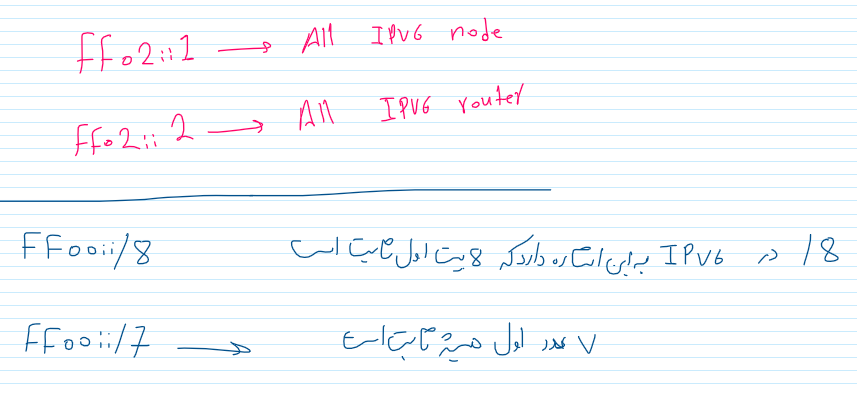 FF02::1 → All IPV6 node
FF02::2 → All IPV6 router
FF00::/8 /8 در IPV6 به این اشاره دارد که 8 بیت اول ثابت است
FF00::/7 → ۷ عدد اول همیشه ثابت است